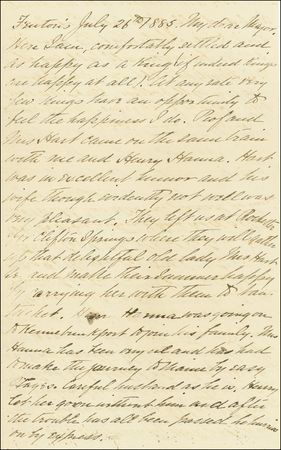 Fenton's July 26th 1885. My dear Mayor,
Here I am, comfortably settled and
as happy as a King if indeed kings
are happy at all! At any rate very
few kings have an opportunity to
feel the happiness I do. Prof and
Mrs Hart came on the same train
with me and Henry Hanna. Hart
was in excellent humor and his
wife though evidently not well was
very pleasant. They left us at Rochester
for Clifton Springs where they will
up that delightful old lady Mrs Hart
and make their summer happy
by carrying her with them to Nan-
tucket. Hanna was going on
to Kennebunkport to join his family. Mrs
Hanna has been very ill and has had
to make the journey to Maine by easy
stages. Careful husband as he is, Henry
let her go on without him and after
the trouble has all been passed, he hurries
on by express.